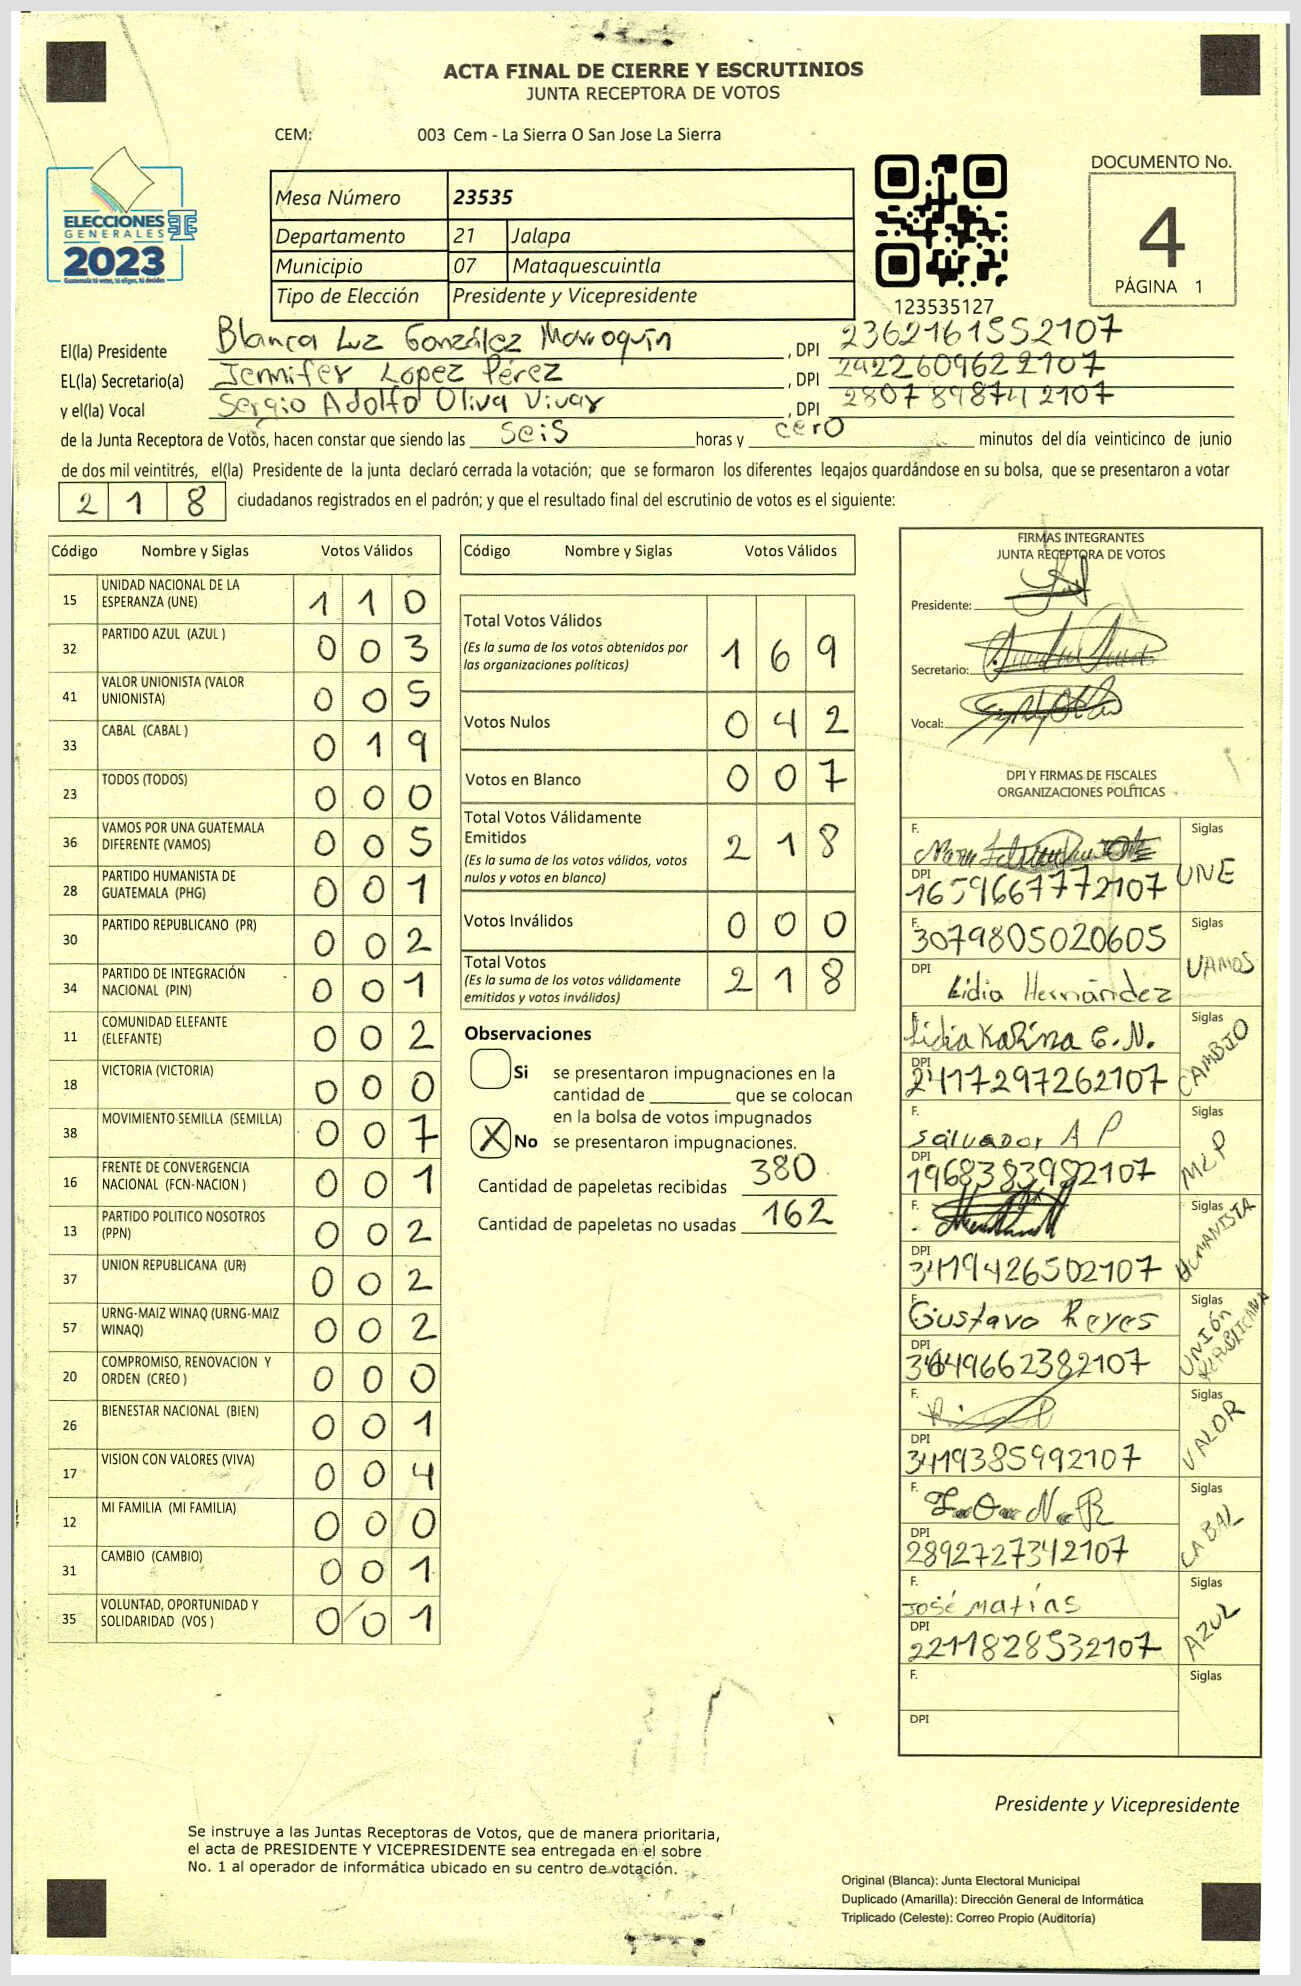 ACTA FINAL DE CIERRE Y ESCRUTINIOS
JUNTA RECEPTORA DE VOTOS
CEM: 003 Cem - La Sierra O San Jose La Sierra
ELECCIONES
GENERALES
2023
Guatemala tú votas, tú eliges, tú decides
Mesa Número 23535
Departamento 21 Jalapa
Municipio 07 Mataquescuintla
Tipo de Elección Presidente y Vicepresidente
123535127
DOCUMENTO No.
4
PÁGINA 1
El(la) Presidente Blanca Luz González Marroquín , DPI 2362161552107
EL(la) Secretario(a) Jennifer López Pérez , DPI 2922609622107
y el(la) Vocal Sergio Adolfo Oliva Vivar , DPI 2807898742107
de la Junta Receptora de Votos, hacen constar que siendo las seis horas y cero minutos del día veinticinco de junio
de dos mil veintitrés, el(la) Presidente de la junta declaró cerrada la votación; que se formaron los diferentes legajos guardándose en su bolsa, que se presentaron a votar
218 ciudadanos registrados en el padrón; y que el resultado final del escrutinio de votos es el siguiente:
Código Nombre y Siglas Votos Válidos
15 UNIDAD NACIONAL DE LA
ESPERANZA (UNE) 110
32 PARTIDO AZUL (AZUL ) 003
41 VALOR UNIONISTA (VALOR
UNIONISTA) 005
33 CABAL (CABAL ) 019
23 TODOS (TODOS) 000
36 VAMOS POR UNA GUATEMALA
DIFERENTE (VAMOS) 005
28 PARTIDO HUMANISTA DE
GUATEMALA (PHG) 001
30 PARTIDO REPUBLICANO (PR) 002
34 PARTIDO DE INTEGRACIÓN
NACIONAL (PIN) 001
11 COMUNIDAD ELEFANTE
(ELEFANTE) 002
18 VICTORIA (VICTORIA) 000
38 MOVIMIENTO SEMILLA (SEMILLA) 007
16 FRENTE DE CONVERGENCIA
NACIONAL (FCN-NACION ) 001
13 PARTIDO POLITICO NOSOTROS
(PPN) 002
37 UNION REPUBLICANA (UR) 002
57 URNG-MAIZ WINAQ (URNG-MAIZ
WINAQ) 002
20 COMPROMISO, RENOVACION Y
ORDEN (CREO ) 000
26 BIENESTAR NACIONAL (BIEN) 001
17 VISION CON VALORES (VIVA) 004
12 MI FAMILIA (MI FAMILIA) 000
31 CAMBIO (CAMBIO) 001
35 VOLUNTAD, OPORTUNIDAD Y
SOLIDARIDAD (VOS ) 001
Código Nombre y Siglas Votos Válidos
Total Votos Válidos
(Es la suma de los votos obtenidos por
las organizaciones políticas) 169
Votos Nulos 042
Votos en Blanco 007
Total Votos Válidamente
Emitidos
(Es la suma de los votos válidos, votos
nulos y votos en blanco) 218
Votos Inválidos 000
Total Votos
(Es la suma de los votos válidamente
emitidos y votos inválidos) 218
Observaciones
Si se presentaron impugnaciones en la
cantidad de ________ que se colocan
en la bolsa de votos impugnados
X No se presentaron impugnaciones.
Cantidad de papeletas recibidas 380
Cantidad de papeletas no usadas 162
FIRMAS INTEGRANTES
JUNTA RECEPTORA DE VOTOS
Presidente:
Secretario:
Vocal:
DPI Y FIRMAS DE FISCALES
ORGANIZACIONES POLÍTICAS
F. Siglas
DPI 1659667772107 UNE
F. 3079805020605 Siglas
DPI Lidia Hernández VAMOS
F. Lidia Karina G.N. Siglas
DPI 2417297262107 CAMBIO
F. Salvador A P Siglas
DPI 1968383982107 MLP
F. Siglas
DPI 3419426502107 HUMANISTA
F. Gustavo Reyes Siglas
DPI UNIÓN REPUBLICANA
F. Siglas
DPI 3419385992107 VALOR
F. Siglas
DPI 2892727342107 CABAL
F. José Matías Siglas
DPI 2211828532107 AZUL
F. Siglas
DPI
Presidente y Vicepresidente
Se instruye a las Juntas Receptoras de Votos, que de manera prioritaria,
el acta de PRESIDENTE Y VICEPRESIDENTE sea entregada en el sobre
No. 1 al operador de informática ubicado en su centro de votación.
Original (Blanca): Junta Electoral Municipal
Duplicado (Amarilla): Dirección General de Informática
Triplicado (Celeste): Correo Propio (Auditoría)